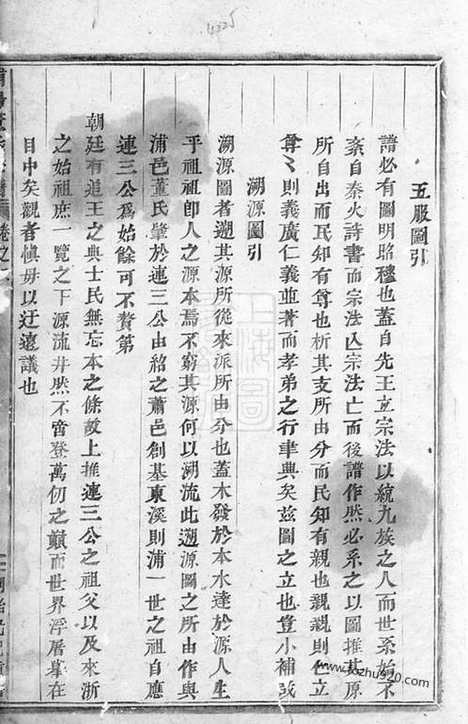 五服圖引
譜必有圖明昭穆也蓋自先王立宗法以統九族之人而世系始不
紊自秦火詩書而宗法亾宗法亡而後譜作然必系之以圖推其原
所自出而民知有尊也析其支所由分而民知有親也親親則仁立
尊〻則義廣仁義並著而孝弟之行聿興矣茲圖之立也豈小補哉
溯源圖引
溯源圖者遡其源所從來派所由分也蓋木發於本水達於源人生
乎祖祖卽人之源本焉不窮其源何以溯流此遡源圖之所由作與
浦邑董氏肇於連三公由紹之蕭邑創基東溪則浦一世之祖自應
連三公爲始餘可不贅第
朝廷有追王之典士民無忘本之條故上推連三公之祖父以及來浙
之始祖庶一覽之下源流井然不啻登萬仞之巔而世界浮屠擧在
目中矣觀者愼毋以迂遠議也
卷之一
4005
www.kozhu910.com